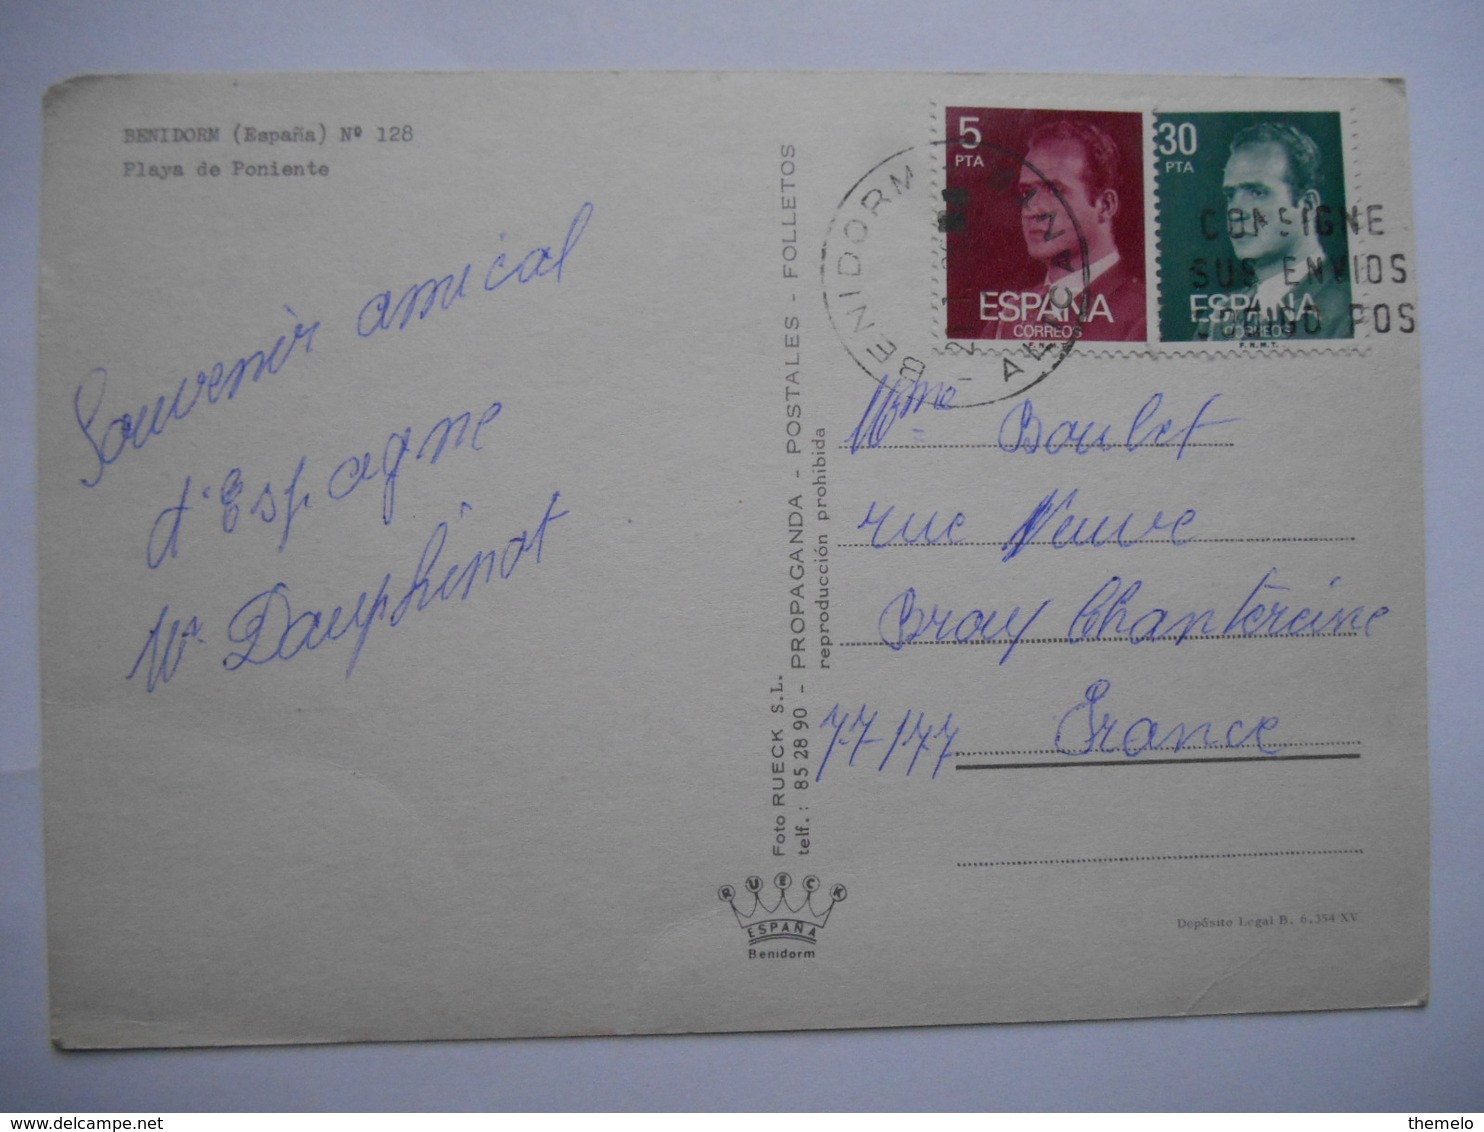 BENIDORM (España) Nº 128
Playa de Poniente
Souvenir amical
d'Espagne
Dauphinot
Foto RUECK S.L.
telf.: 85 28 90 - PROPAGANDA - POSTALES - FOLLETOS
reproducción prohibida
RUECK
ESPAÑA
Benidorm
5
PTA
ESPAÑA
CORREOS
30
PTA
ESPAÑA
CORREOS
F.N.M.T.
BENIDORM
ALICANTE
CONSIGNE
SUS ENVIOS
POS
Mme Boulet
rue Neuve
Brou Chantereine
77-177 France
Depósito Legal B. 6.354 XV
themelo